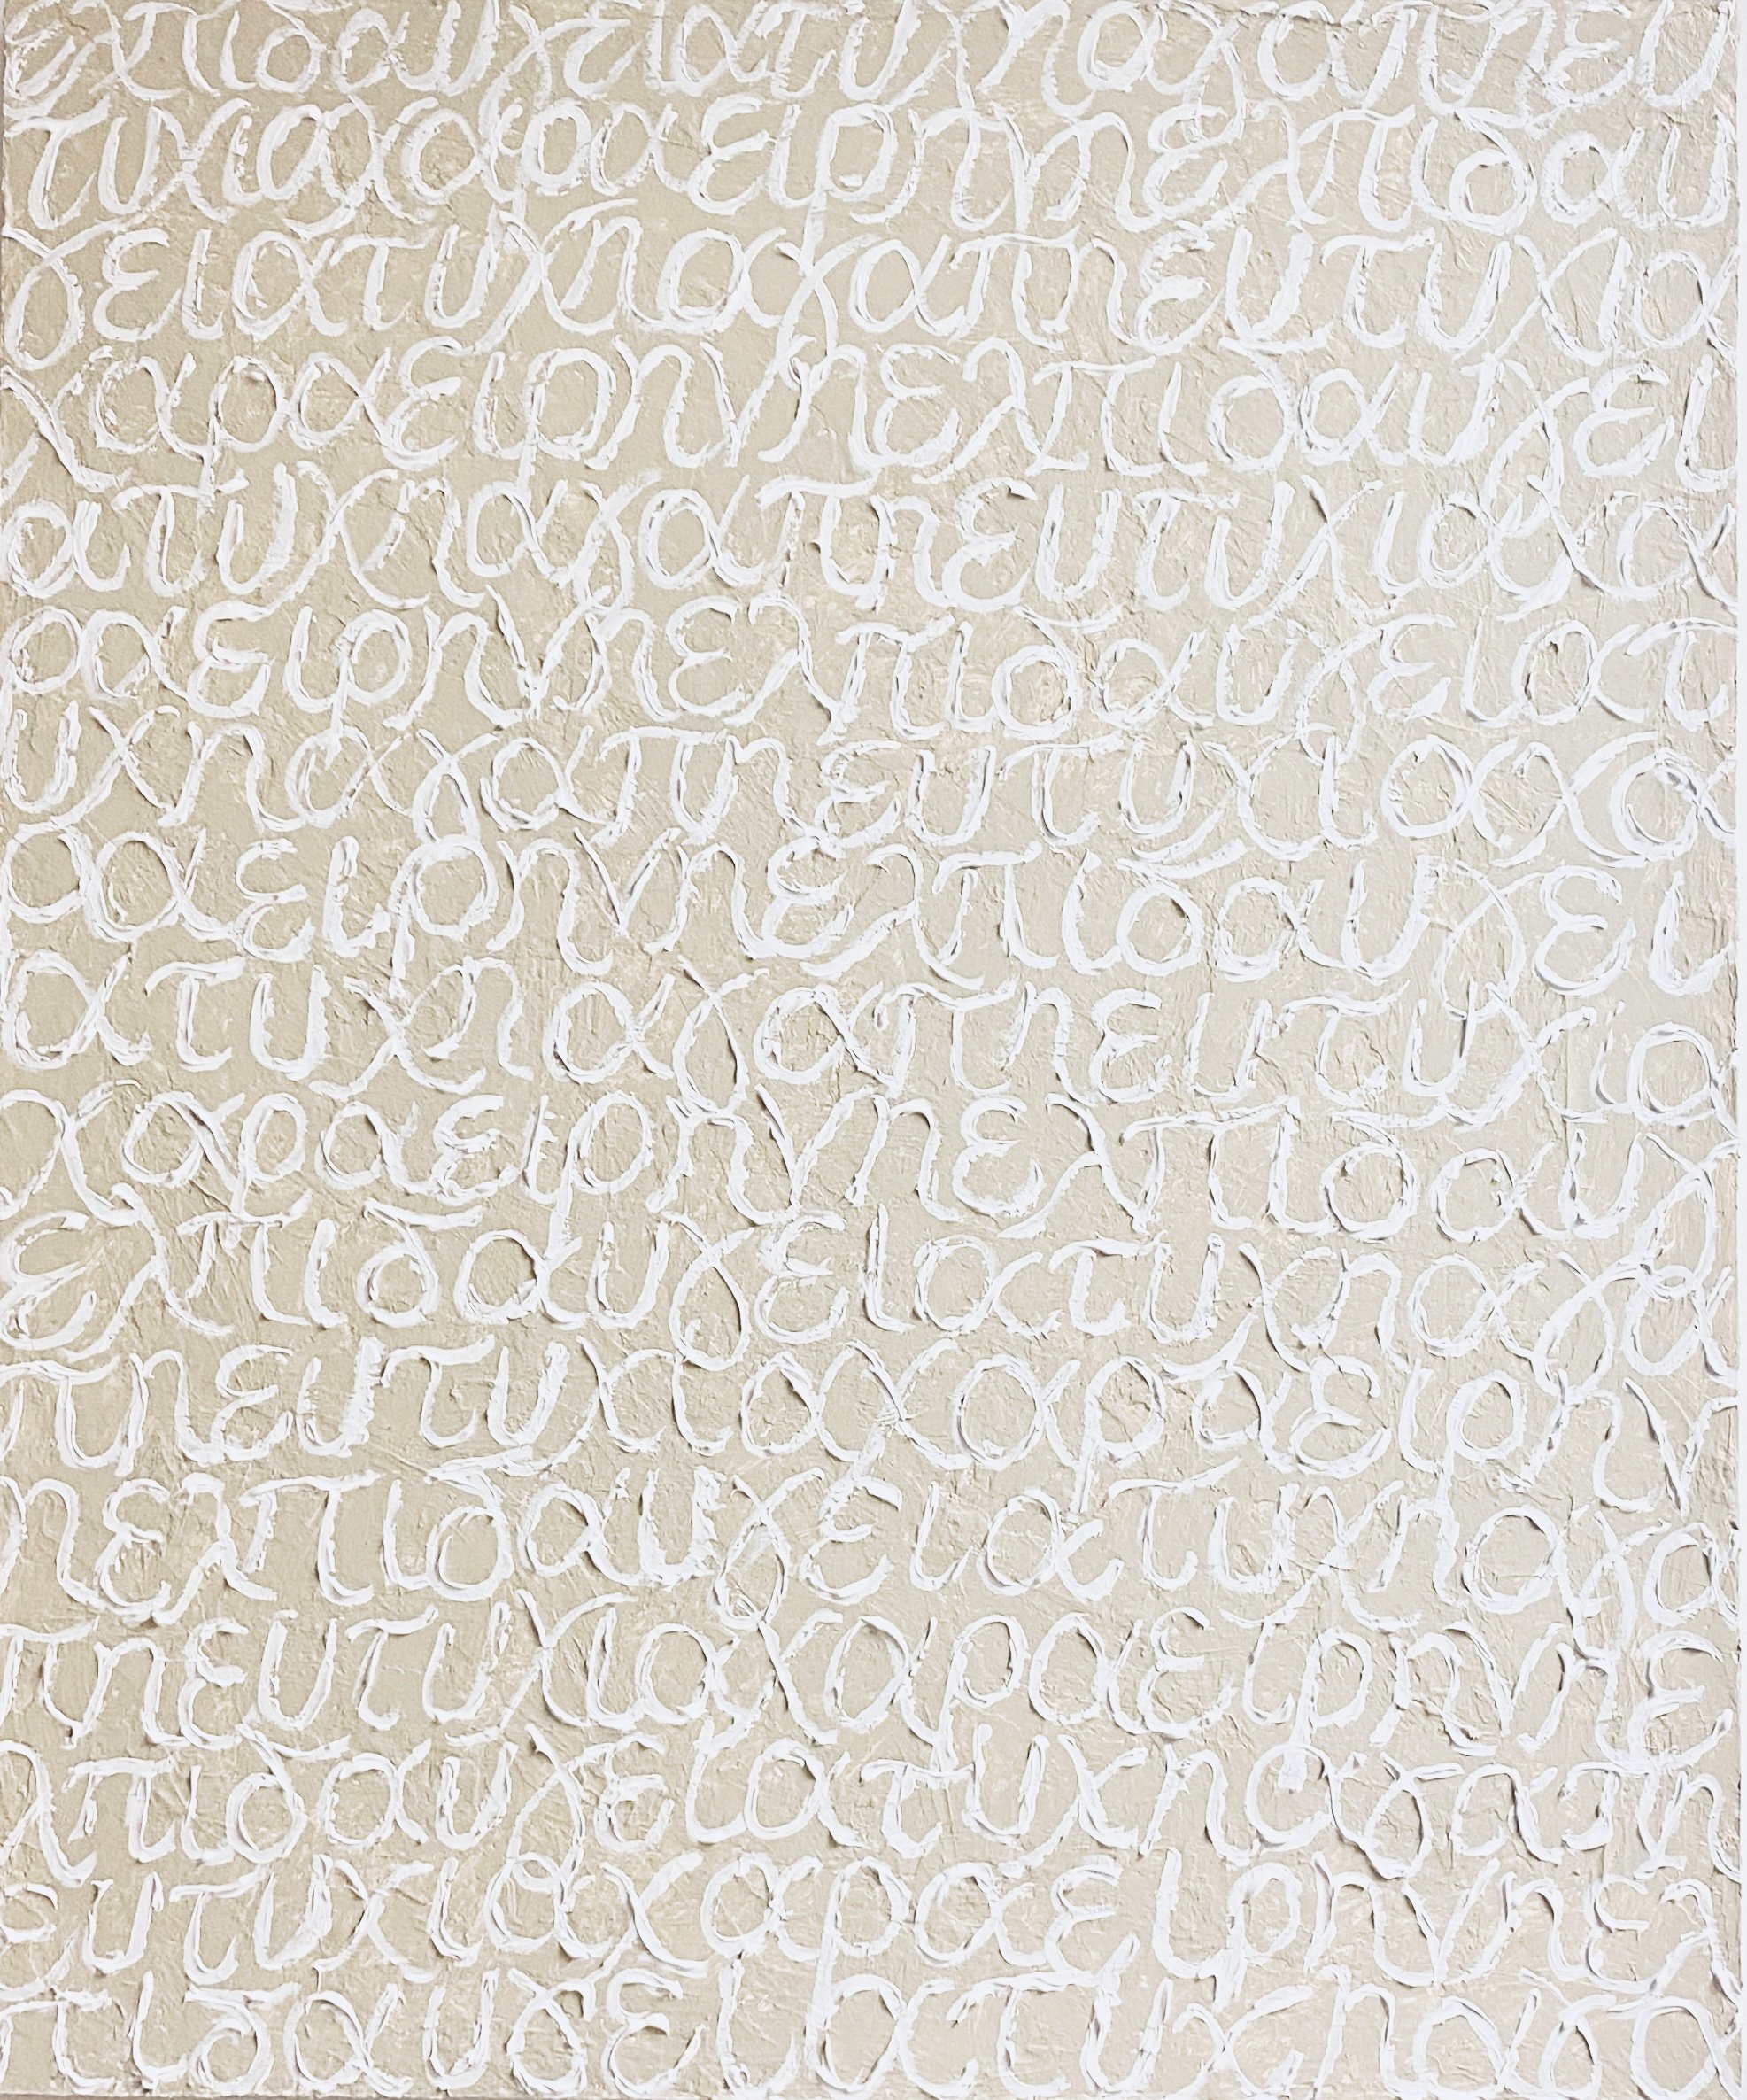 ελπιδαυγειατυχηαγαπηευ
τυχιαχαραειρηνηελπιδαυ
γειατυχηαγαπηευτυχια
χαραειρηνηελπιδαυγει
ατυχηαγαπηευτυχιαχα
ραειρηνηελπιδαυγειατ
υχηαγαπηευτυχιαχα
ραειρηνηελπιδαυγει
ατυχηαγαπηευτυχια
χαραειρηνηελπιδαυγ
ελπιδαυγειατυχηαγα
πηευτυχιαχαραειρην
ηελπιδαυγειατυχηαγα
πηευτυχιαχαραειρηνηε
λπιδαυγειατυχηαγαπη
ευτυχιαχαραειρηνηελ
πιδαυγειατυχηαγα